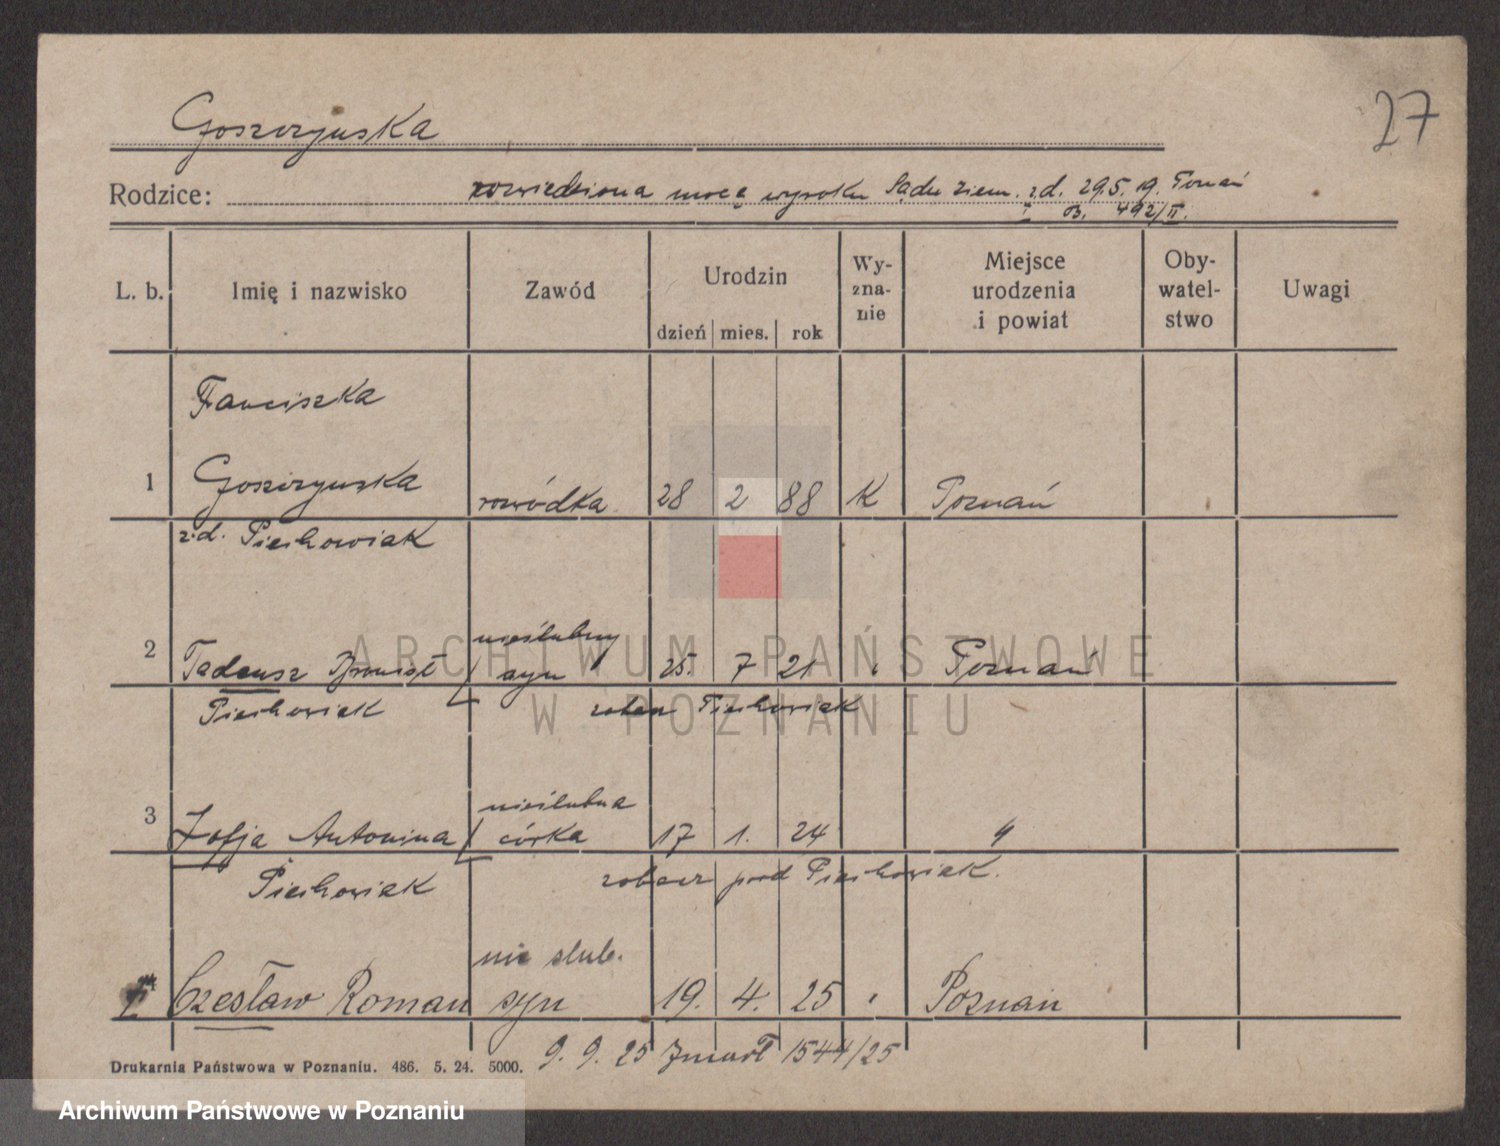 27
Goszczynska
Rodzice: rozwiedziona mocą wyroku Sądu ziem. z d. 29.5.19. Poznań
B. 492/II.
L. b. Imię i nazwisko Zawód Urodzin dzień mies. rok Wy-zna-nie Miejsce urodzenia i powiat Oby-watel-stwo Uwagi
Franciszka
1 Goszczynska rozwódka 28 2 88 K Poznań
z.d. Piechowiak
nieślubny
2 Tadeusz Bronisł syn 25. 7 21 " Poznań
Piechowiak zobacz Piechowiak
nieślubna
3 Zofja Antonina córka 17 1. 24 "
Piechowiak zobacz pod Piechowiak.
nie slub.
4 Czesław Roman syn 19. 4. 25 " Poznan
9. 9. 25 Zmarł 1544/25
Drukarnia Państwowa w Poznaniu. 486. 5. 24. 5000.
ARCHIWUM PAŃSTWOWE
W POZNANIU
Archiwum Państwowe w Poznaniu